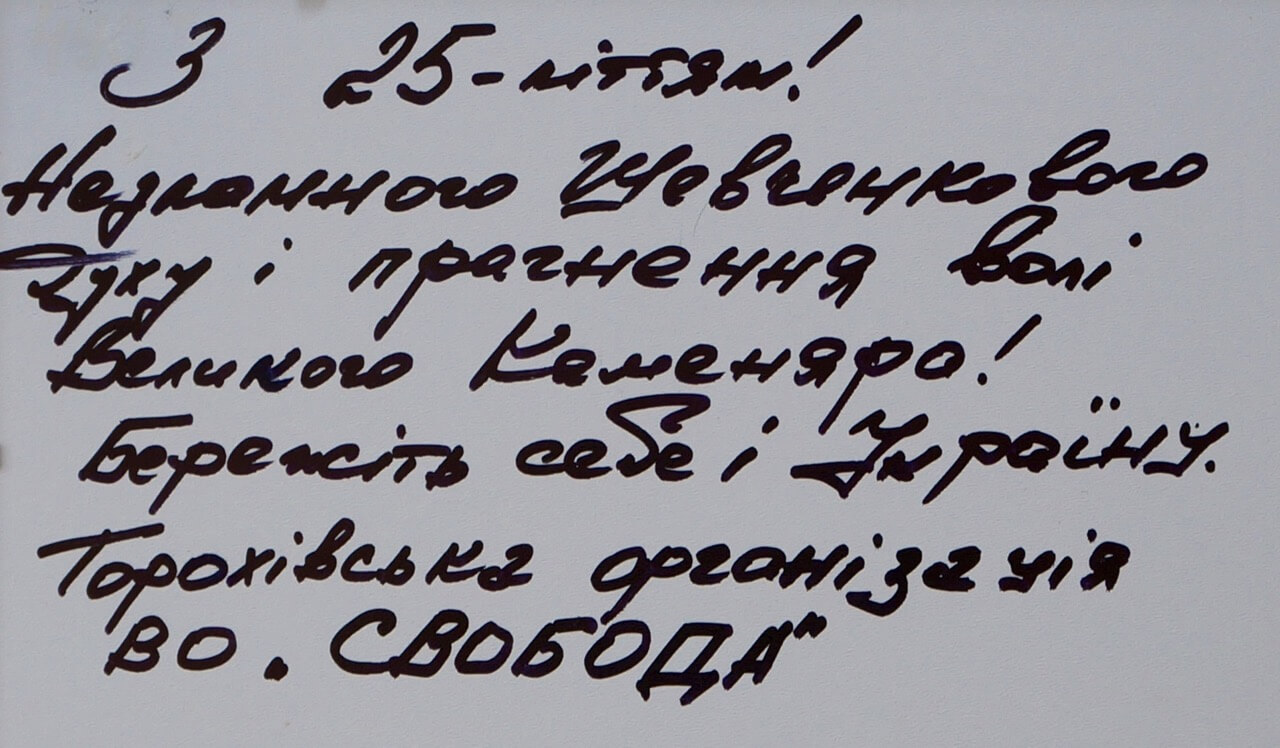 З 25-літтям!
Незламного Шевченкового
Духу і прагнення волі
Великого Каменяра!
Бережіть себе і Україну.
Торохівська організація
ВО „СВОБОДА"